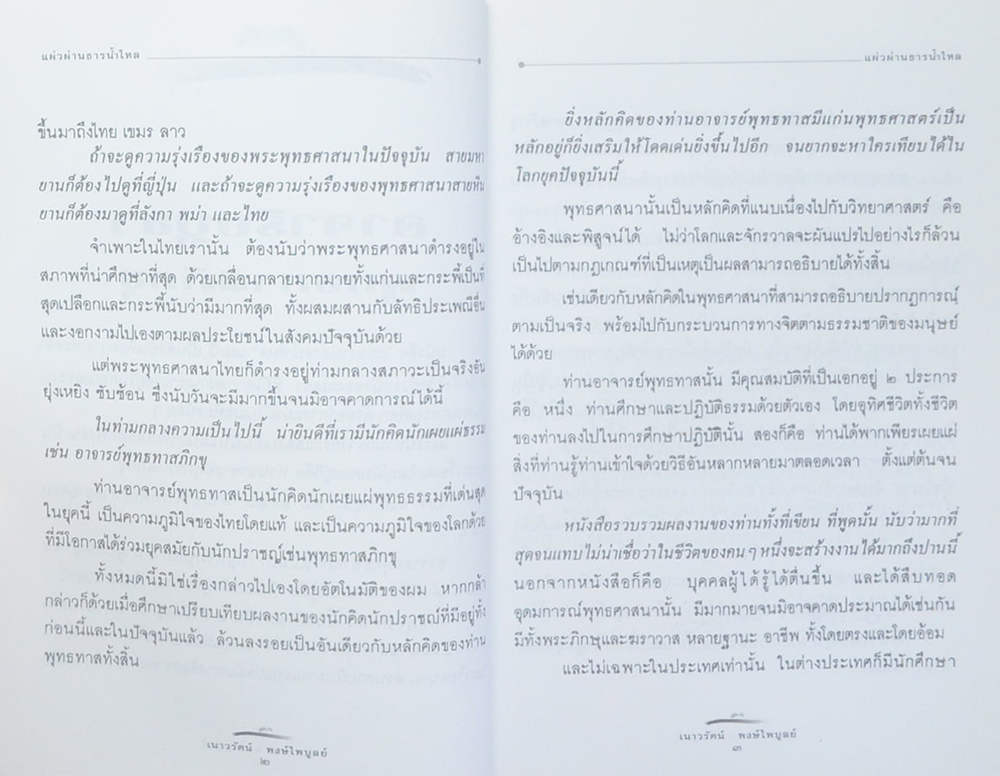 แผ่วผ่านธารน้ำไหล
ขึ้นมาถึงไทย เขมร ลาว
ถ้าจะดูความรุ่งเรืองของพระพุทธศาสนาในปัจจุบัน สายมหา
ยานก็ต้องไปดูที่ญี่ปุ่น และถ้าจะดูความรุ่งเรืองของพุทธศาสนาสายหิน
ยานก็ต้องมาดูที่ลังกา พม่า และไทย
จำเพาะในไทยเรานั้น ต้องนับว่าพระพุทธศาสนาดำรงอยู่ใน
สภาพที่น่าศึกษาที่สุด ด้วยเกลื่อนกลายมากมายทั้งแก่นและกระพี้เป็นที่
สุดเปลือกและกระพี้นับว่ามีมากที่สุด ทั้งผสมผสานกับลัทธิประเพณีอื่น
และงอกงามไปเองตามผลประโยชน์ในสังคมปัจจุบันด้วย
แต่พระพุทธศาสนาไทยก็ดำรงอยู่ท่ามกลางสภาวะเป็นจริงอัน
ยุ่งเหยิง ซับซ้อน ซึ่งนับวันจะมีมากขึ้นจนมิอาจคาดการณ์ได้นี้
ในท่ามกลางความเป็นไปนี้ น่ายินดีที่เรามีนักคิดนักเผยแผ่ธรรม
เช่น อาจารย์พุทธทาสภิกขุ
ท่านอาจารย์พุทธทาสเป็นนักคิดนักเผยแผ่พุทธธรรมที่เด่นสุด
ในยุคนี้ เป็นความภูมิใจของไทยโดยแท้ และเป็นความภูมิใจของโลกด้วย
ที่มีโอกาสได้ร่วมยุคสมัยกับนักปราชญ์เช่นพุทธทาสภิกขุ
ทั้งหมดนี้มิใช่เรื่องกล่าวไปเองโดยอัตโนมัติของผม หากกล้า
กล่าวก็ด้วยเมื่อศึกษาเปรียบเทียบผลงานของนักคิดนักปราชญ์ที่มีอยู่ทั้ง
ก่อนนี้และในปัจจุบันแล้ว ล้วนลงรอยเป็นอันเดียวกับหลักคิดของท่าน
พุทธทาสทั้งสิ้น
เนาวรัตน์ พงษ์ไพบูลย์
๒
แผ่วผ่านธารน้ำไหล
ยิ่งหลักคิดของท่านอาจารย์พุทธทาสมีแก่นพุทธศาสตร์เป็น
หลักอยู่ก็ยิ่งเสริมให้โดดเด่นยิ่งขึ้นไปอีก จนยากจะหาใครเทียบได้ใน
โลกยุคปัจจุบันนี้
พุทธศาสนานั้นเป็นหลักคิดที่แนบเนื่องไปกับวิทยาศาสตร์ คือ
อ้างอิงและพิสูจน์ได้ ไม่ว่าโลกและจักรวาลจะผันแปรไปอย่างไรก็ล้วน
เป็นไปตามกฎเกณฑ์ที่เป็นเหตุเป็นผลสามารถอธิบายได้ทั้งสิ้น
เช่นเดียวกับหลักคิดในพุทธศาสนาที่สามารถอธิบายปรากฏการณ์
ตามเป็นจริง พร้อมไปกับกระบวนการทางจิตตามธรรมชาติของมนุษย์
ได้ด้วย
ท่านอาจารย์พุทธทาสนั้น มีคุณสมบัติที่เป็นเอกอยู่ ๒ ประการ
คือ หนึ่ง ท่านศึกษาและปฏิบัติธรรมด้วยตัวเอง โดยอุทิศชีวิตทั้งชีวิต
ของท่านลงไปในการศึกษาปฏิบัตินั้น สองก็คือ ท่านได้พากเพียรเผยแผ่
สิ่งที่ท่านรู้ท่านเข้าใจด้วยวิธีอันหลากหลายมาตลอดเวลา ตั้งแต่ต้นจน
ปัจจุบัน
หนังสือรวบรวมผลงานของท่านทั้งที่เขียน ที่พูดนั้น นับว่ามากที่
สุดจนแทบไม่น่าเชื่อว่าในชีวิตของคนๆ หนึ่งจะสร้างงานได้มากถึงปานนี้
นอกจากหนังสือก็คือ บุคคลผู้ได้รู้ได้ตื่นขึ้น และได้สืบทอด
อุดมการณ์พุทธศาสนานั้น มีมากมายจนมิอาจคาดประมาณได้เช่นกัน
มีทั้งพระภิกษุและฆราวาส หลายฐานะ อาชีพ ทั้งโดยตรงและโดยอ้อม
และไม่เฉพาะในประเทศเท่านั้น ในต่างประเทศก็มีนักศึกษา
เนาวรัตน์ พงษ์ไพบูลย์
๓